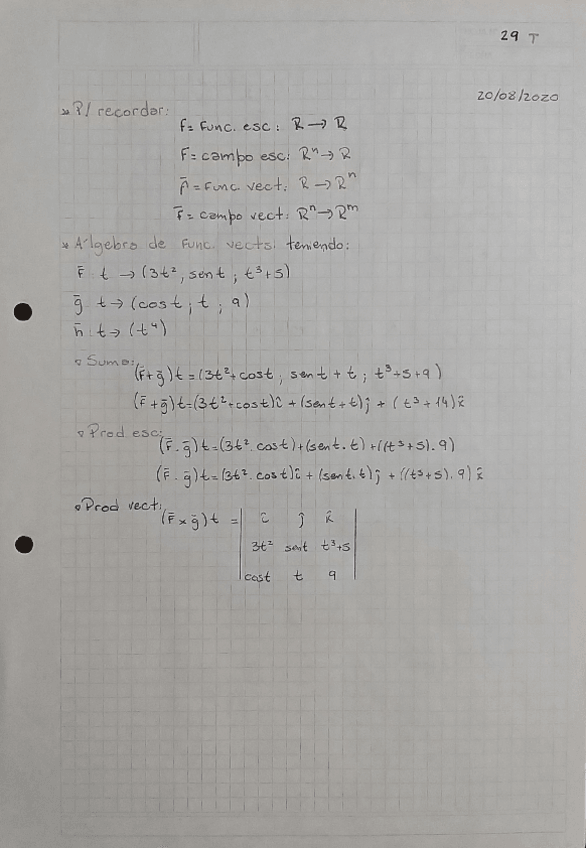 29 T
20/08/2020
* P/ recordar:
f = func. esc: R → R
F = campo esc: Rⁿ → R
f̄ = func. vect: R → Rⁿ
F̄ = campo vect: Rⁿ → Rᵐ
* Álgebra de func. vects. teniendo:
F̄ t → (3t² ; sen t ; t³+5)
ḡ t → (cos t ; t ; 9)
h̄ : t → (t⁴)
Suma:
(F̄+ḡ)t = (3t²+cos t ; sen t + t ; t³+5+9)
(F̄+ḡ)t = (3t²+cos t)î + (sen t + t)ĵ + (t³+14)k̂
Prod esc:
(F̄ . ḡ)t = (3t² . cos t)+(sen t . t)+((t³+5) . 9)
(F̄ . ḡ)t = (3t² . cos t)î + (sen t . t)ĵ + ((t³+5) . 9)k̂
Prod vect:
(F̄ × ḡ)t = | î ĵ k̂ |
3t² sen t t³+5
cos t t 9